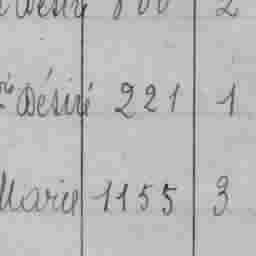 Désiré 800 2
Désiré 221 1
Marie 1155 3